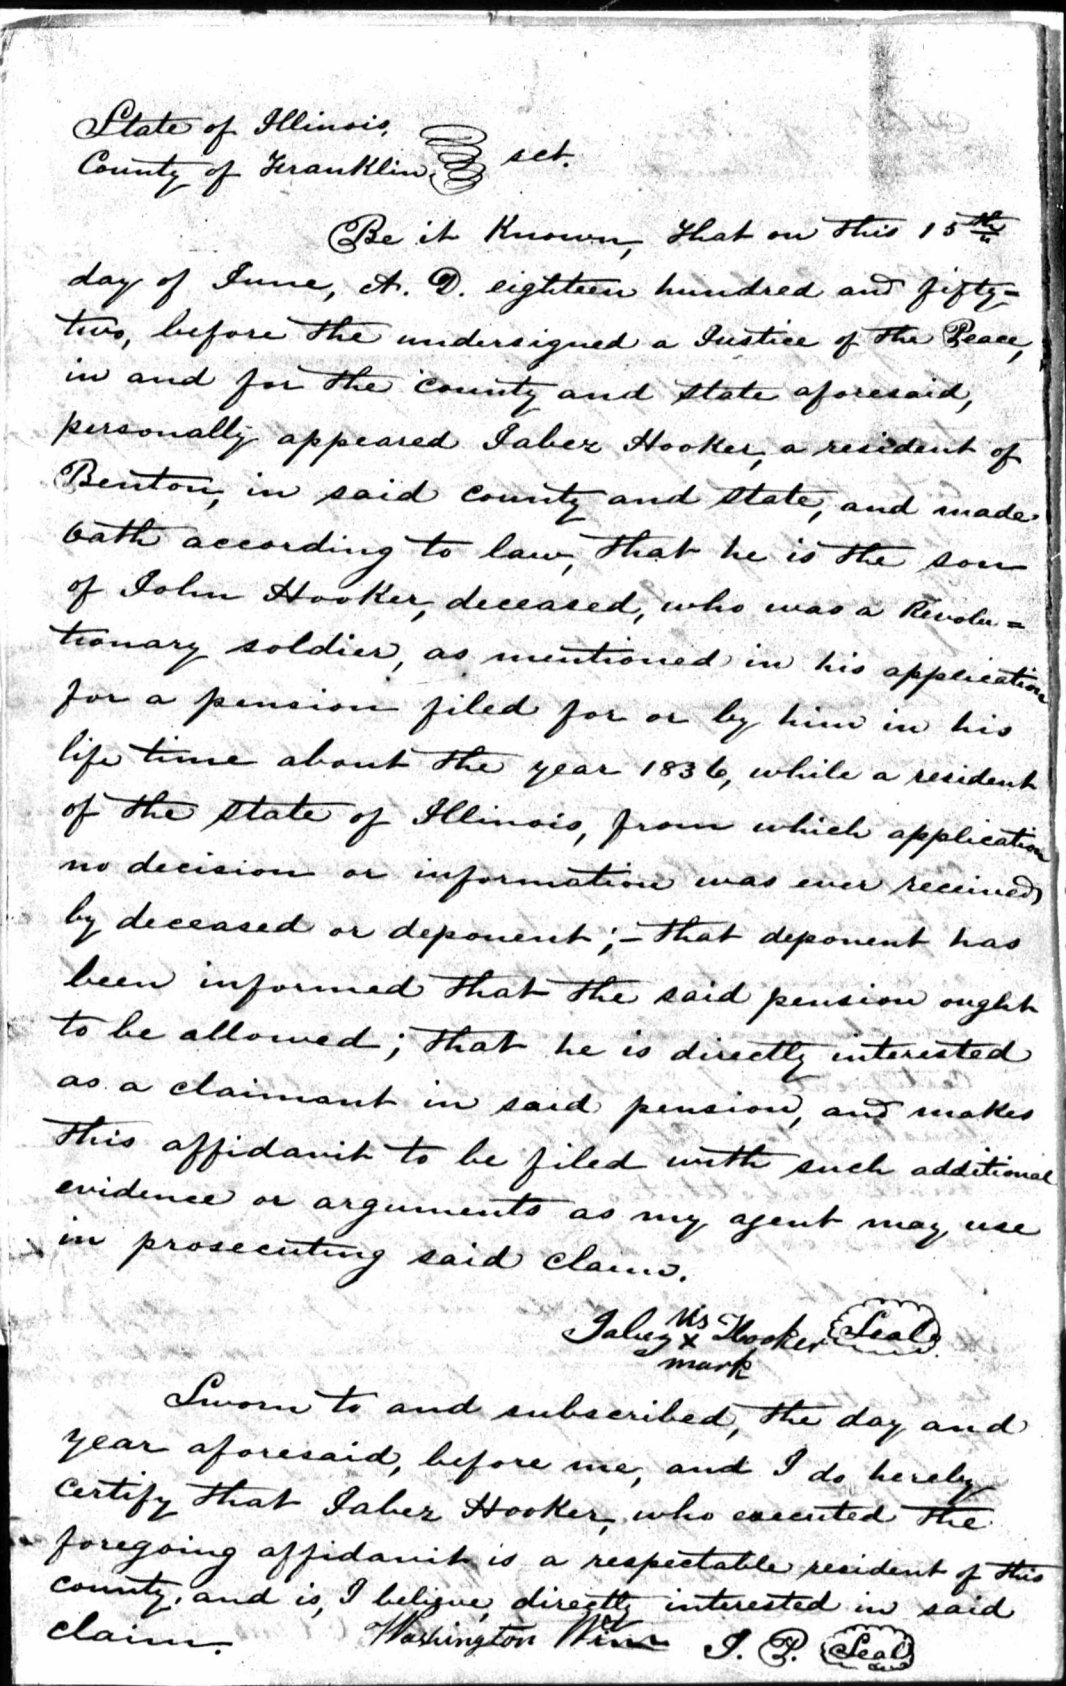 State of Illinois,
County of Franklin, sct.
Be it Known, that on this 15th
day of June, A. D. eighteen hundred and fifty=
two, before the undersigned a Justice of the Peace,
in and for the county and state aforesaid,
personally appeared Jabez Hooker, a resident of
Benton, in said county and state, and made
oath according to law, that he is the son
of John Hooker, deceased, who was a Revolu=
tionary soldier, as mentioned in his application
for a pension filed for or by him in his
life time about the year 1836, while a resident
of the state of Illinois, from which application
no decision or information was ever received
by deceased or deponent;- that deponent has
been informed that the said pension ought
to be allowed; that he is directly interested
as a claimant in said pension, and makes
this affidavit to be filed with such additional
evidence or arguments as my agent may use
in prosecuting said claim.
his
Jabez x Hooker Seal
mark
Sworn to and subscribed, the day and
year aforesaid, before me, and I do hereby
certify that Jabez Hooker, who executed the
foregoing affidavit is a respectable resident of this
county, and is, I believe, directly interested in said
claim. Washington J. P. Seal